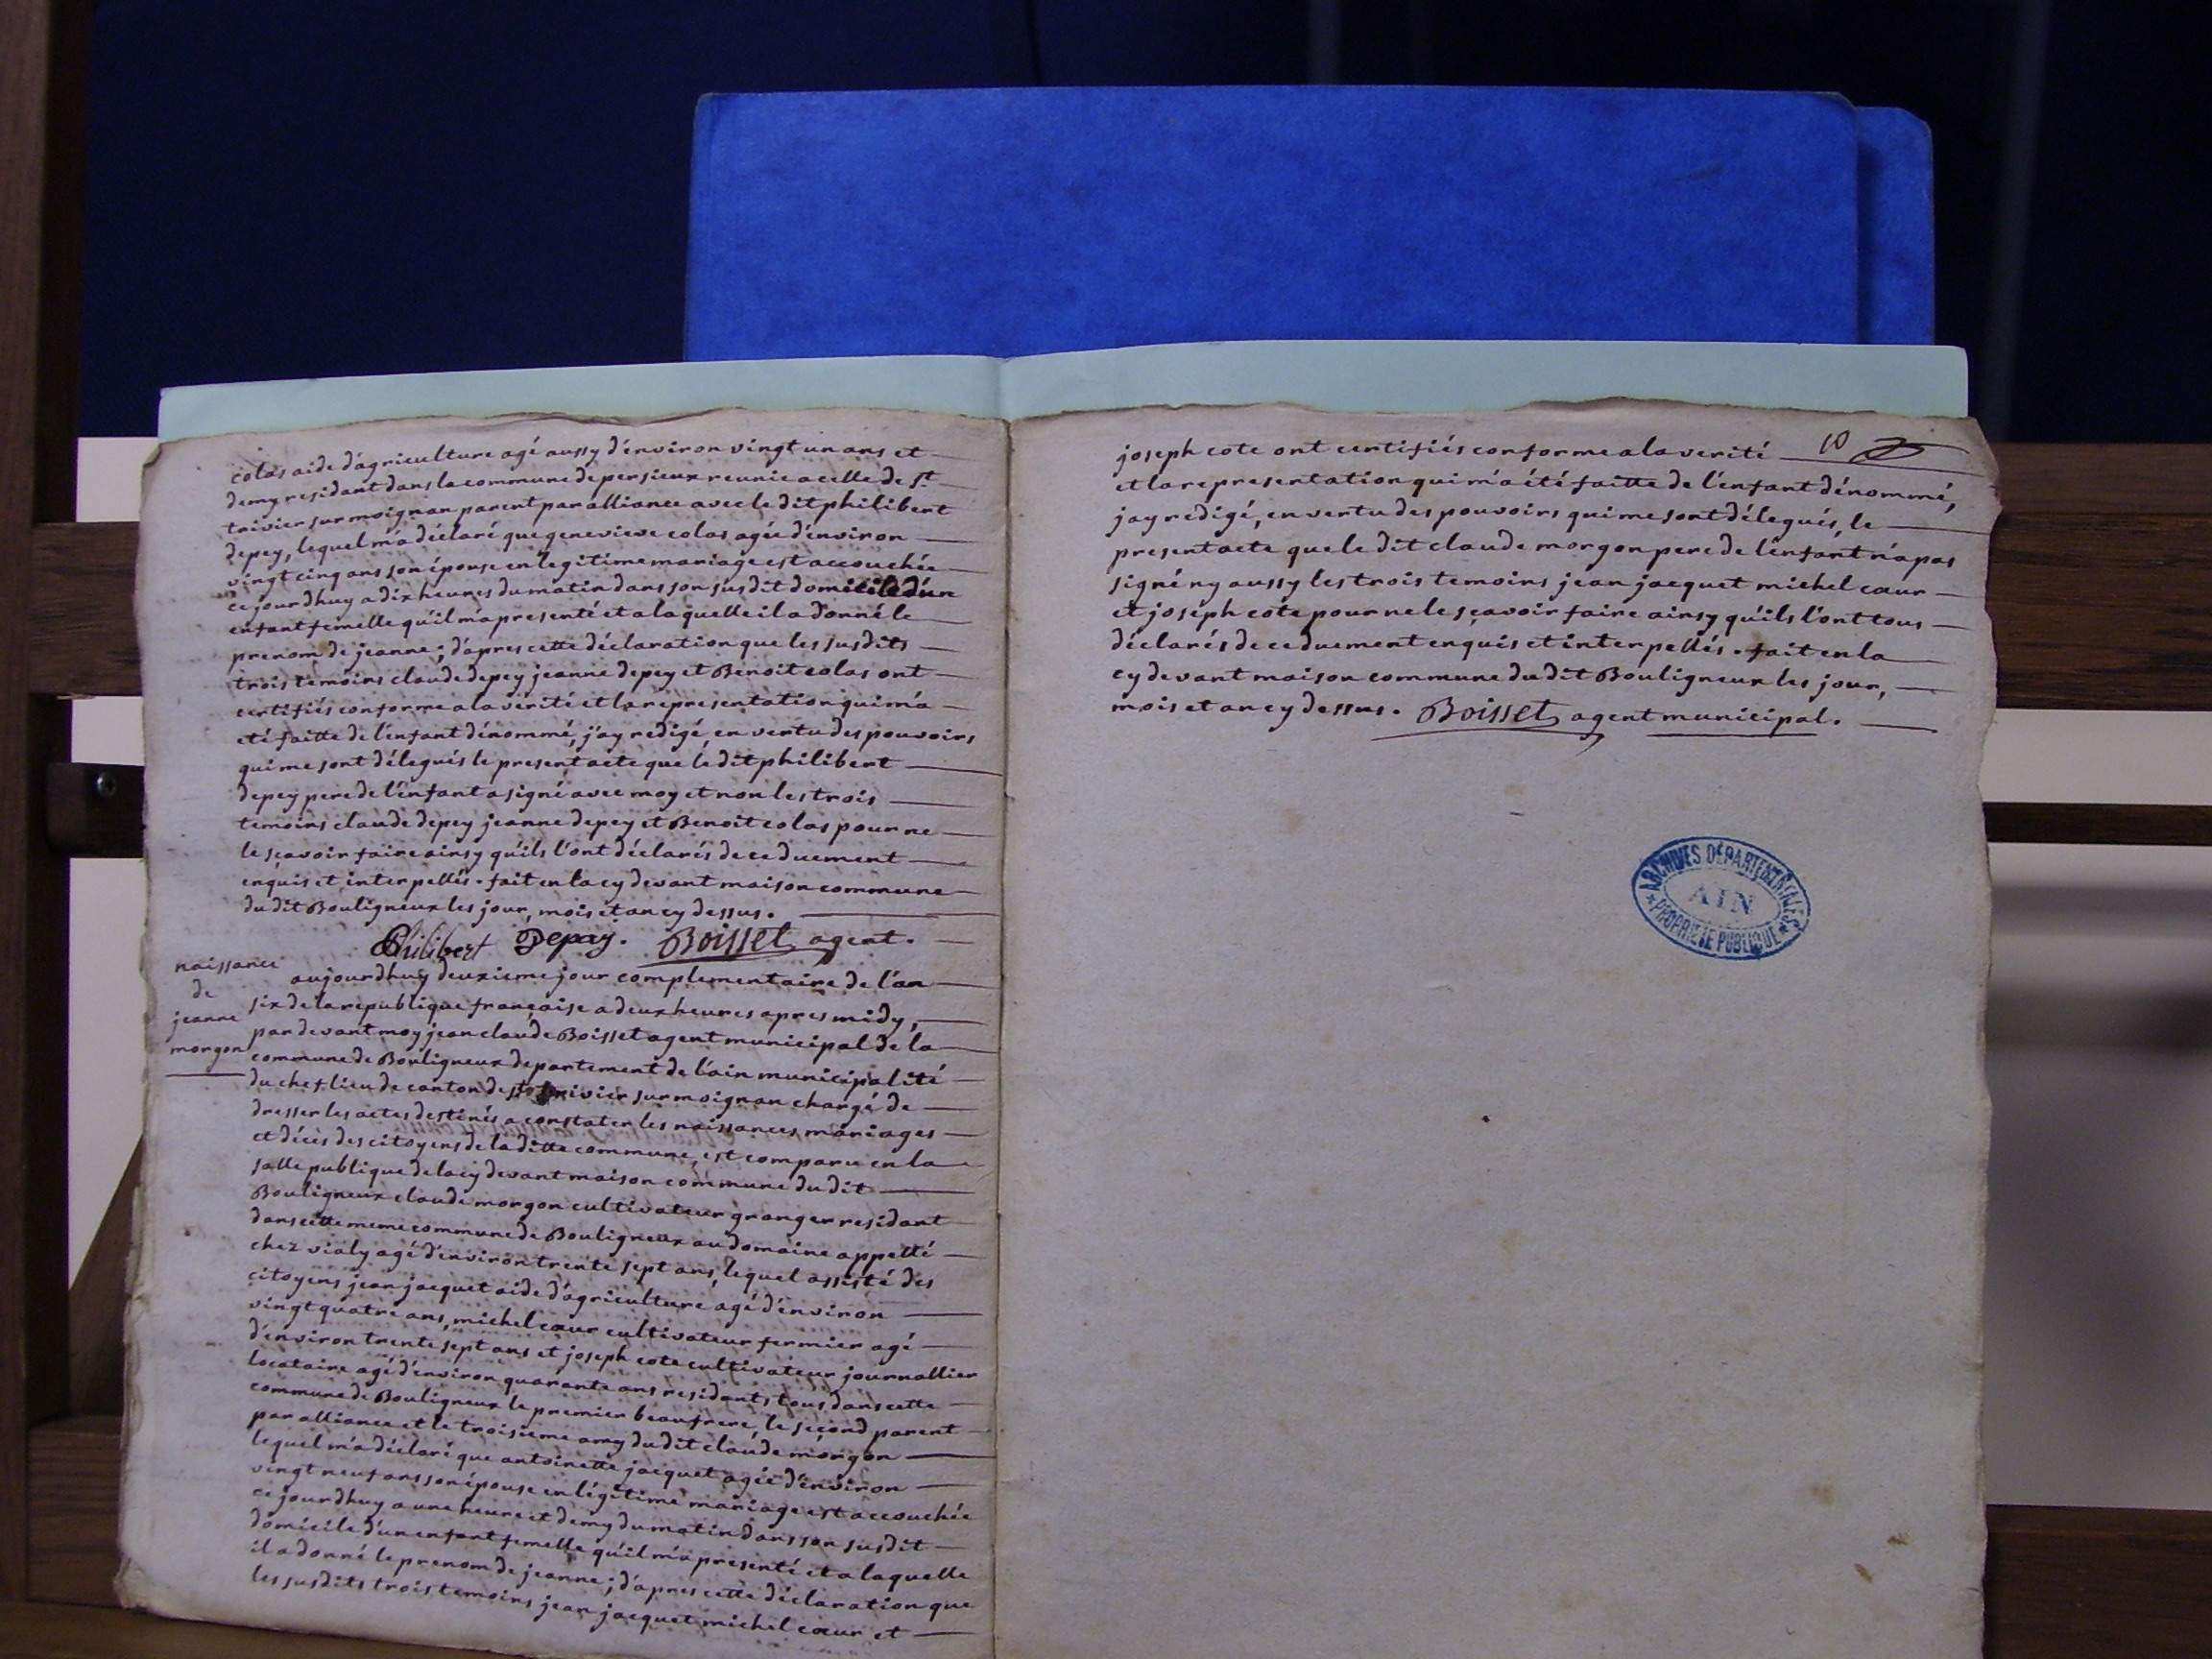 colas aide d'agriculture agé aussy d'environ vingt un ans et
demy residant dans la commune de persieux reunie a celle de st
trivier sur moignan parent par alliance avec le dit philibert
depey, lequel m'a déclaré que genevieve colas agée d'environ
vingt cinq ans son épouse en legitime mariage est accouchée
ce jourdhuy a dix heures du matin dans son susdit domicile d'un
enfant femelle qu'il m'a presenté et a laquelle il a donné le
prenom de jeanne; d'apres cette déclaration que les susdits
trois temoins claude depey jeanne depey et Benoit colas ont
certifiés conforme a la verité et la representation qui m'a
été faitte de l'enfant dénommé, j'ay redigé en vertu des pouvoirs
qui me sont délegués le present acte que le dit philibert
depey pere de l'enfant a signé avec moy et non les trois
temoins claude depey jeanne depey et Benoit colas pour ne
le sçavoir faire ainsy qu'ils l'ont déclarés de ce duement
enquis et interpellés. fait en la cy devant maison commune
du dit Bouligneux les jour, mois et an cy dessus.
Philibert Depay. Boisset agent.
naissance
de
jeanne
morgon
aujourdhuy deuxieme jour complementaire de l'an
six de la republique française a deux heures apres midy,
par devant moy jean claude Boisset agent municipal de la
commune de Bouligneux departement de l'ain municipalité
du chef lieu de canton de st trivier sur moignan chargé de
dresser les actes destinés a constater les naissances, mariages
et décès des citoyens de la ditte commune, est comparu en la
salle publique de la cy devant maison commune du dit
Bouligneux claude morgon cultivateur granger residant
dans cette meme commune de Bouligneux au domaine appellé
chez vialy agé d'environ trente sept ans, lequel assisté des
citoyens jean jacquet aide d'agriculture agé d'environ
vingt quatre ans, michel cœur cultivateur fermier agé
d'environ trente sept ans et joseph cote cultivateur journallier
locataire agé d'environ quarante ans residants tous dans cette
commune de Bouligneux le premier beaufrere, le second parent
par alliance et le troisieme amy du dit claude morgon
lequel m'a déclaré que antoinette jacquet agée d'environ
vingt neuf ans son épouse en légitime mariage est accouchée
ce jourdhuy a une heure et demy du matin dans son susdit
domicile d'un enfant femelle qu'il m'a presenté et a laquelle
il a donné le prenom de jeanne; d'apres cette déclaration que
les susdits trois temoins jean jacquet michel cœur et
joseph cote ont certifiés conforme a la verité
et la representation qui m'a été faitte de l'enfant dénommé,
jay redigé, en vertu des pouvoirs qui me sont délegués, le
present acte que le dit claude morgon pere de l'enfant n'a pas
signé ny aussy les trois temoins jean jacquet michel cœur
et joseph cote pour ne le sçavoir faire ainsy qu'ils l'ont tous
déclarés de ce duement enquis et interpellés. fait en la
cy devant maison commune du dit Bouligneux les jour,
mois et an cy dessus. Boisset agent municipal.
ARCHIVES DÉPARTEMENTALES
AIN
PROPRIÉTÉ PUBLIQUE